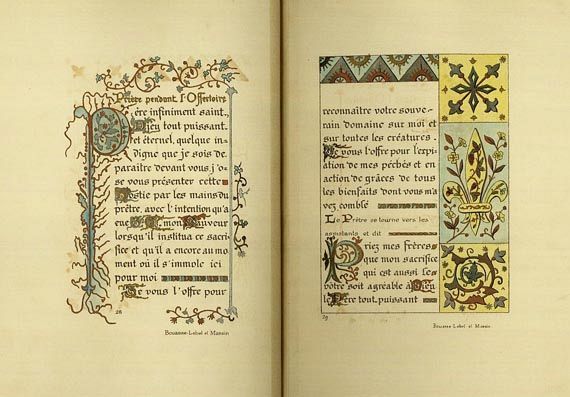 Prière pendant l'Offertoire
Père infiniment saint,
Dieu tout puissant
et éternel, quelque in-
digne que je sois de
paraître devant vous, j'o-
se vous présenter cette
hostie par les mains du
prêtre, avec l'intention qu'a
eue mon Sauveur
lorsqu'il institua ce sacri-
fice et qu'il a encore au mo-
ment où il s'immole ici
pour moi
Je vous l'offre pour
28
Bouasse-Lebel et Massin
reconnaître votre souve-
rain domaine sur moi et
sur toutes les créatures.
Je vous l'offre pour l'expi-
ation de mes péchés et en
action de grâces de tous
les bienfaits dont vous m'a
vez comblé
Le Prêtre se tourne vers les
assistants et dit
Priez mes frères
que mon sacrifice
qui est aussi le
vôtre soit agréable à Dieu
le Père tout puissant
29
Bouasse-Lebel et Massin